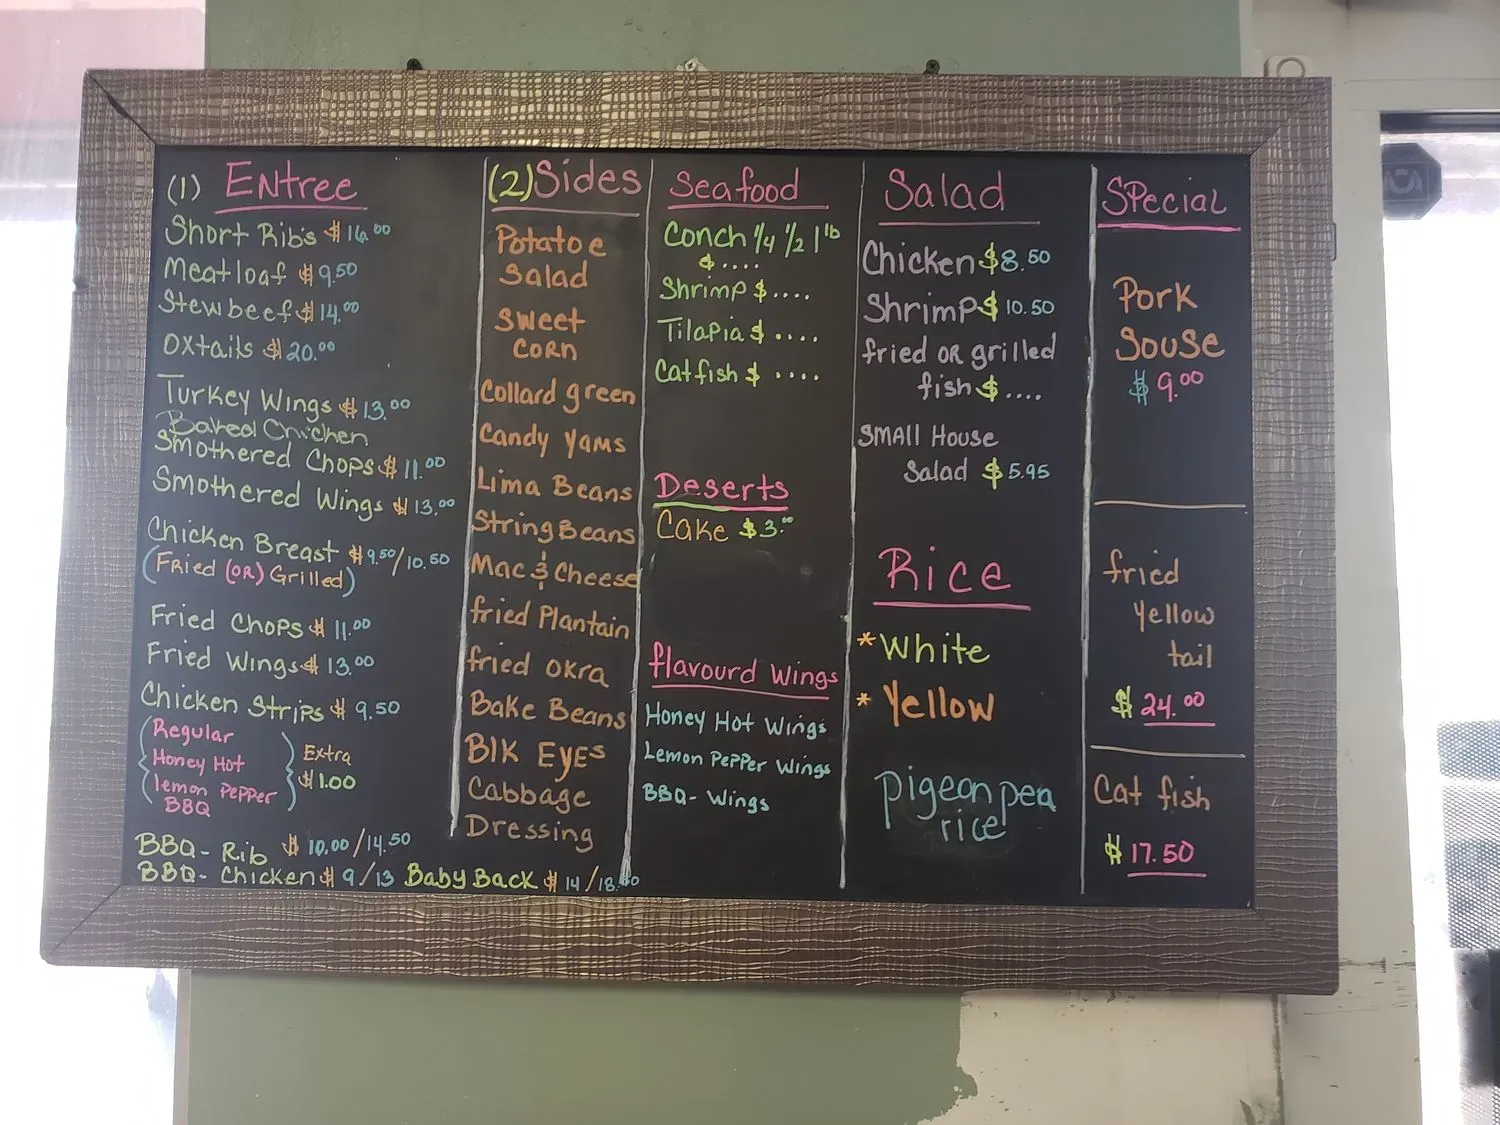 (1) Entree
Short Ribs $16.00
Meatloaf $9.50
Stewbeef $14.00
Oxtails $20.00
Turkey Wings $13.00
Baked Chicken
Smothered Chops $11.00
Smothered Wings $13.00
Chicken Breast $9.50/10.50
(Fried (OR) Grilled)
Fried Chops $11.00
Fried Wings $13.00
Chicken Strips $9.50
Regular
Honey Hot
lemon Pepper
BBQ
Extra
$1.00
BBQ- Rib $10.00/14.50
BBQ- Chicken $9/13 Baby Back $14/18.50
(2) Sides
Potatoe
Salad
Sweet
CORN
Collard green
Candy Yams
Lima Beans
String Beans
Mac & Cheese
fried Plantain
fried OKra
Bake Beans
Blk EYEs
Cabbage
Dressing
Seafood
Conch 1/4 1/2 1 lb
$....
Shrimp $....
Tilapia $....
Catfish $....
Deserts
Cake $3.00
flavourd Wings
Honey Hot Wings
Lemon Pepper Wings
BBQ- Wings
Salad
Chicken $8.50
Shrimp $10.50
fried OR grilled
fish $....
SMAll House
Salad $5.95
Rice
*White
*Yellow
pigeon pea
rice
SPecial
Pork
Souse
$9.00
fried
yellow
tail
$24.00
Cat fish
$17.50